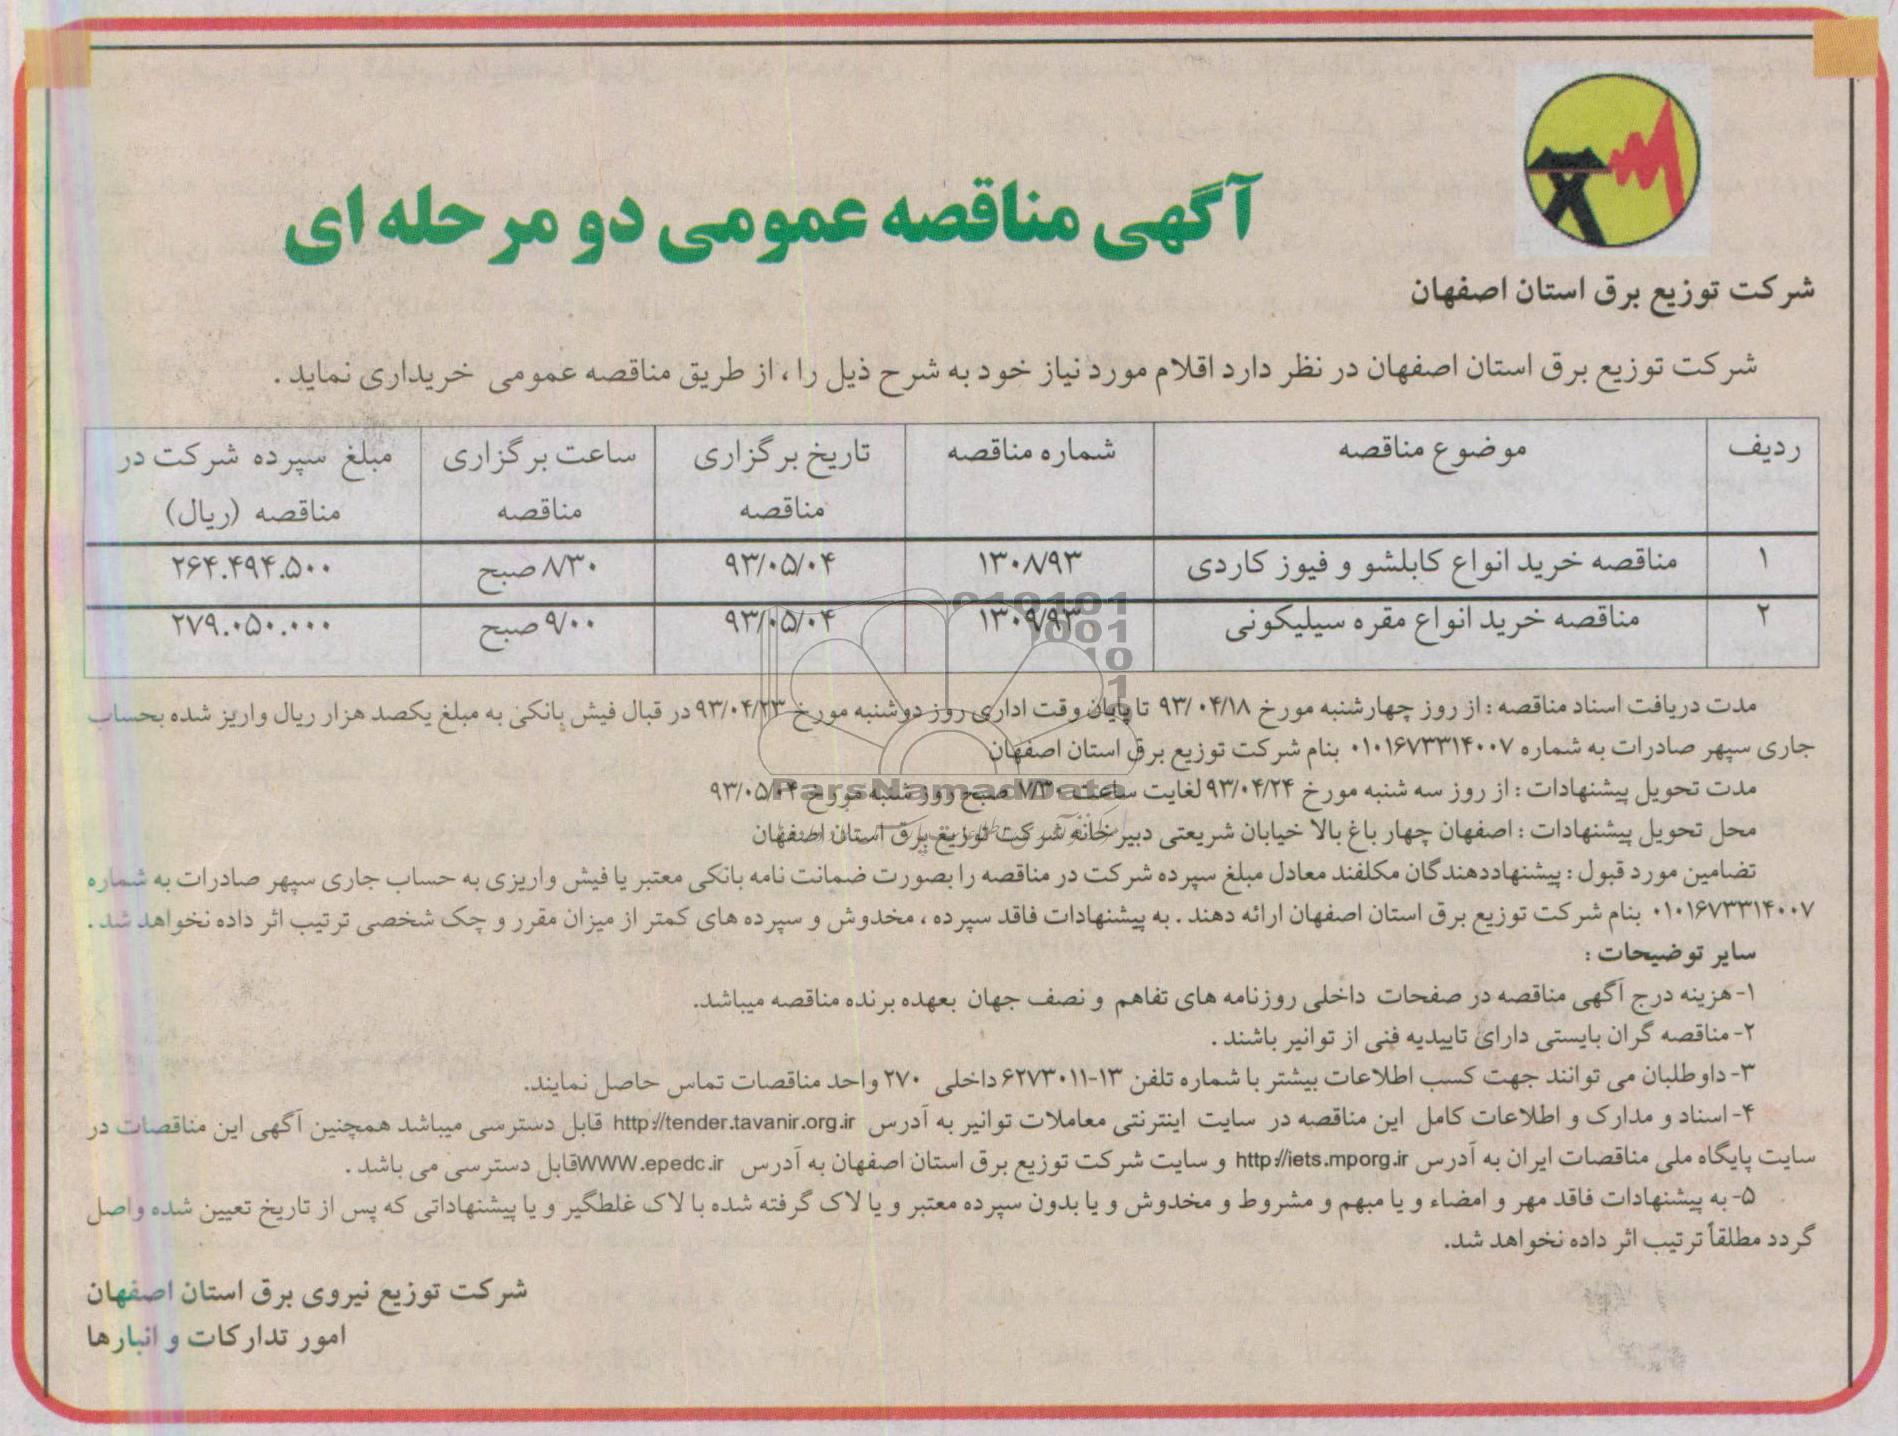 آگهی مناقصه عمومی دو مرحله ای
شرکت توزیع برق استان اصفهان
شرکت توزیع برق استان اصفهان در نظر دارد اقلام مورد نیاز خود به شرح ذیل را ، از طریق مناقصه عمومی خریداری نماید .
ردیف موضوع مناقصه شماره مناقصه تاریخ برگزاری مناقصه ساعت برگزاری مناقصه مبلغ سپرده شرکت در مناقصه (ریال)
۱ مناقصه خرید انواع کابلشو و فیوز کاردی ۱۳۰۸/۹۳ ۹۳/۰۵/۰۴ ۸/۳۰ صبح ۲۶۴.۴۹۴.۵۰۰
۲ مناقصه خرید انواع مقره سیلیکونی ۱۳۰۹/۹۳ ۹۳/۰۵/۰۴ ۹/۰۰ صبح ۲۷۹.۰۵۰.۰۰۰
مدت دریافت اسناد مناقصه : از روز چهارشنبه مورخ ۹۳/۰۴/۱۸ تا پایان وقت اداری روز دوشنبه مورخ ۹۳/۰۴/۲۳ در قبال فیش بانکی به مبلغ یکصد هزار ریال واریز شده بحساب
جاری سپهر صادرات به شماره ۰۱۰۱۶۷۳۳۱۴۰۰۷ بنام شرکت توزیع برق استان اصفهان
مدت تحویل پیشنهادات : از روز سه شنبه مورخ ۹۳/۰۴/۲۴ لغایت ساعت ۷/۳۰ صبح روز شنبه مورخ ۹۳/۰۵/۰۴
محل تحویل پیشنهادات : اصفهان چهار باغ بالا خیابان شریعتی دبیرخانه شرکت توزیع برق استان اصفهان
تضامین مورد قبول : پیشنهاددهندگان مکلفند معادل مبلغ سپرده شرکت در مناقصه را بصورت ضمانت نامه بانکی معتبر یا فیش واریزی به حساب جاری سپهر صادرات به شماره
۰۱۰۱۶۷۳۳۱۴۰۰۷ بنام شرکت توزیع برق استان اصفهان ارائه دهند . به پیشنهادات فاقد سپرده ، مخدوش و سپرده های کمتر از میزان مقرر و چک شخصی ترتیب اثر داده نخواهد شد .
سایر توضیحات :
۱- هزینه درج آگهی مناقصه در صفحات داخلی روزنامه های تفاهم و نصف جهان بعهده برنده مناقصه میباشد.
۲- مناقصه گران بایستی دارای تاییدیه فنی از توانیر باشند .
۳- داوطلبان می توانند جهت کسب اطلاعات بیشتر با شماره تلفن ۱۳-۶۲۷۳۰۱۱ داخلی ۲۷۰ واحد مناقصات تماس حاصل نمایند.
۴- اسناد و مدارک و اطلاعات کامل این مناقصه در سایت اینترنتی معاملات توانیر به آدرس http://tender.tavanir.org.ir قابل دسترسی میباشد همچنین آگهی این مناقصات در
سایت پایگاه ملی مناقصات ایران به آدرس http://iets.mporg.ir و سایت شرکت توزیع برق استان اصفهان به آدرس WWW.epedc.ir قابل دسترسی می باشد .
۵- به پیشنهادات فاقد مهر و امضاء و یا مبهم و مشروط و مخدوش و یا بدون سپرده معتبر و یا لاک گرفته شده با لاک غلطگیر و یا پیشنهاداتی که پس از تاریخ تعیین شده واصل
گردد مطلقاً ترتیب اثر داده نخواهد شد.
شرکت توزیع نیروی برق استان اصفهان
امور تدارکات و انبارها
010101
1001
10
1
ParsNamadData